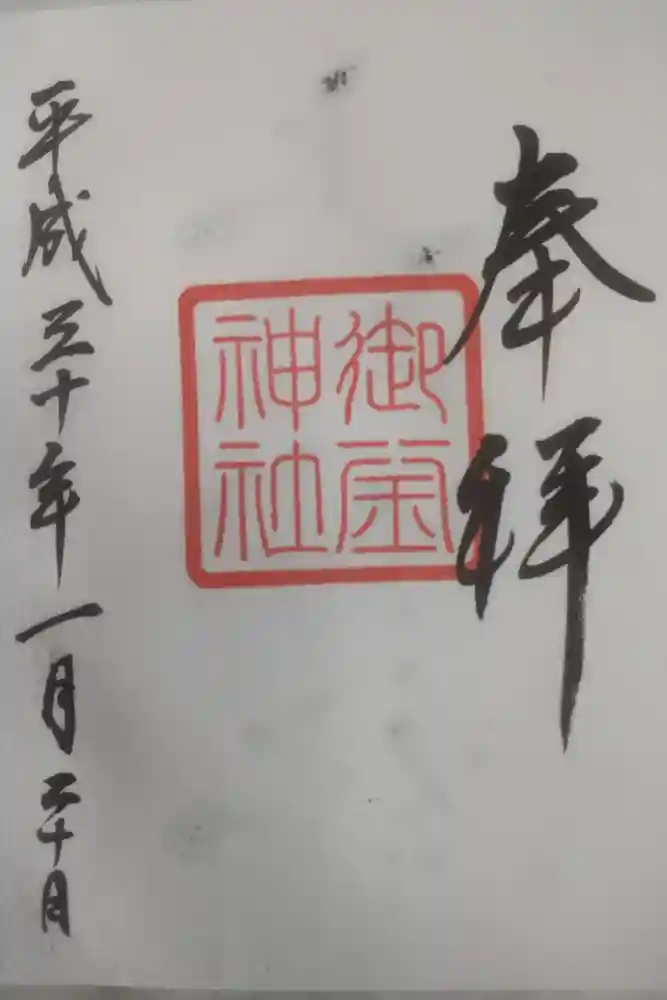 奉拝
御金
神社
平成三十年一月二十日